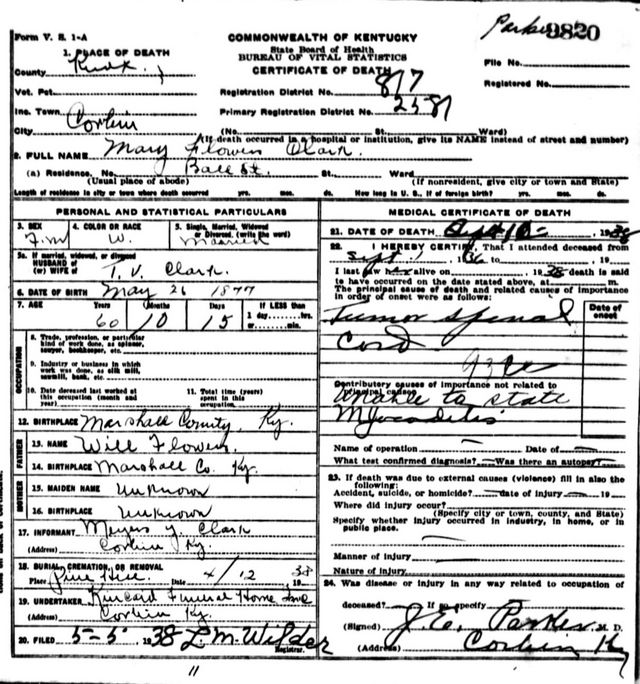 Parker 9820
Form V. S. 1-A
COMMONWEALTH OF KENTUCKY
State Board of Health
BUREAU OF VITAL STATISTICS
CERTIFICATE OF DEATH
File No.
Registered No.
1. PLACE OF DEATH
County Knox
Vot. Pct.
Registration District No. 817
Inc. Town Corbin
Primary Registration District No. 2581
City (No. St. Ward)
(If death occurred in a hospital or institution, give its NAME instead of street and number)
2. FULL NAME Mary Flowers Clark
(a) Residence. No. Ball St. St. Ward
(Usual place of abode) (If nonresident, give city or town and State)
Length of residence in city or town where death occurred yrs. mos. ds. How long in U. S., if of foreign birth? yrs. mos. ds.
PERSONAL AND STATISTICAL PARTICULARS
3. SEX
4. COLOR OR RACE W.
5. Single, Married, Widowed or Divorced. (write the word) Married
5a. If married, widowed, or divorced
HUSBAND of
(or) WIFE of T. V. Clark.
6. DATE OF BIRTH May 26 1877
7. AGE Years 60 Months 10 Days 15 If LESS than 1 day, hrs. or min.
OCCUPATION
8. Trade, profession, or particular kind of work done, as spinner, sawyer, bookkeeper, etc.
9. Industry or business in which work was done, as silk mill, sawmill, bank, etc.
10. Date deceased last worked at this occupation (month and year)
11. Total time (years) spent in this occupation
12. BIRTHPLACE Marshall County, Ky.
FATHER
13. NAME Will Flowers
14. BIRTHPLACE Marshall Co. Ky.
MOTHER
15. MAIDEN NAME Unknown
16. BIRTHPLACE Unknown
17. INFORMANT Clark
(Address) Corbin Ky.
18. BURIAL, CREMATION, OR REMOVAL
Place Pine Hill Date 4/12 1938
19. UNDERTAKER Kincard Funeral Home Inc
(Address) Corbin Ky
20. FILED 5-5- 1938 L. M. Wilder Registrar.
MEDICAL CERTIFICATE OF DEATH
21. DATE OF DEATH 10 1938
22. I HEREBY CERTIFY, That I attended deceased from
Sept. 1 1936 to , 19
I last saw alive on , 1938 death is said
to have occurred on the date stated above, at m.
The principal cause of death and related causes of importance
in order of onset were as follows:
Date of onset
Tumor Spinal
Cord
Contributory causes of importance not related to
principal cause:
Unable to state
Myocarditis
Name of operation Date of
What test confirmed diagnosis? Was there an autopsy?
23. If death was due to external causes (violence) fill in also the
following:
Accident, suicide, or homicide? date of injury 19
Where did injury occur?
(Specify city or town, county, and State)
Specify whether injury occurred in industry, in home, or in
public place.
Manner of injury
Nature of injury
24. Was disease or injury in any way related to occupation of
deceased? If so specify
(Signed) J. C. Parker M. D.
(Address) Corbin Ky
11